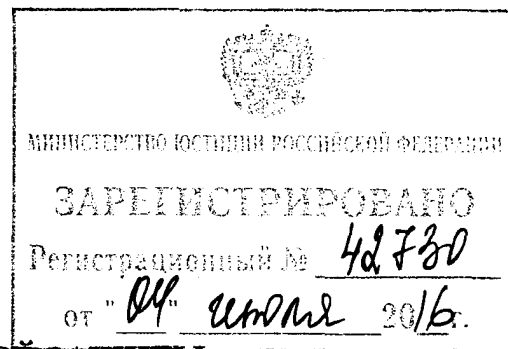 МИНИСТЕРСТВО ЮСТИЦИИ РОССИЙСКОЙ ФЕДЕРАЦИИ
ЗАРЕГИСТРИРОВАНО
Регистрационный № 42730
от "04" июля 2016г.